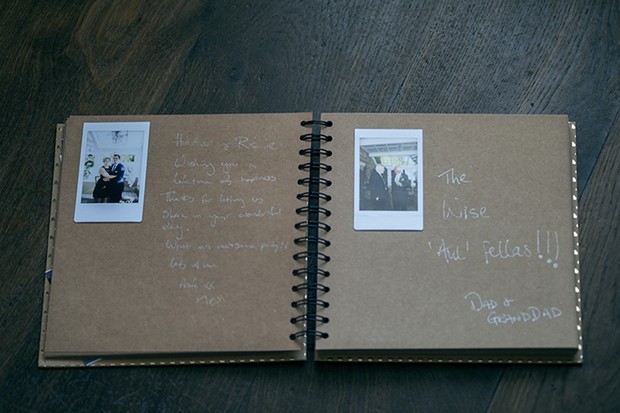 Wishing you a
lifetime of happiness
Thanks for letting us
share in your wonderful
day.
What an awesome party!!
Lots of love
xx
The
Wise
Fellas!!!
DAD &
GRANDDAD